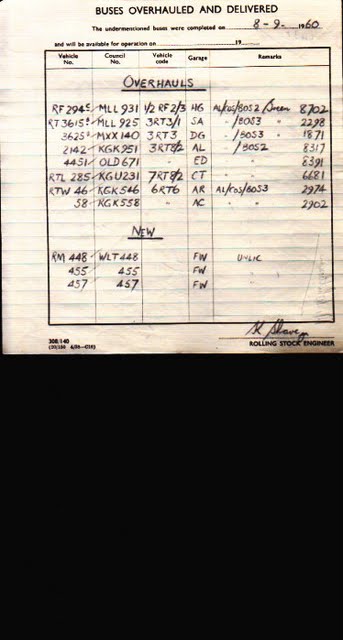 BUSES OVERHAULED AND DELIVERED
The undermentioned buses were completed on 8-9- 1960
and will be available for operation on 19
Vehicle No. Council No. Vehicle code Garage Remarks
OVERHAULS
RF 294 MLL 931 1/2 RF 2/3 HG Green 8702
RT 3615 MLL 925 3RT3/1 SA " /BOS3 2298
3625 MXX 140 3RT3 DG " /BOS3 " 1871
2142 KGK 951 3RT8/2 AL " /BOS2 8317
4451 OLD 671 " ED " " 8391
RTL 285 KGU 231 7RT8/2 CT " " 6681
RTW 46 KGK 546 6RT6 AR AL/FOS/BOS3 2974
58 KGK 558 " AC " " 2902
NEW
RM 448 WLT 448 FW UNLIC
455 455 FW "
457 457 FW "
ROLLING STOCK ENGINEER
308/140